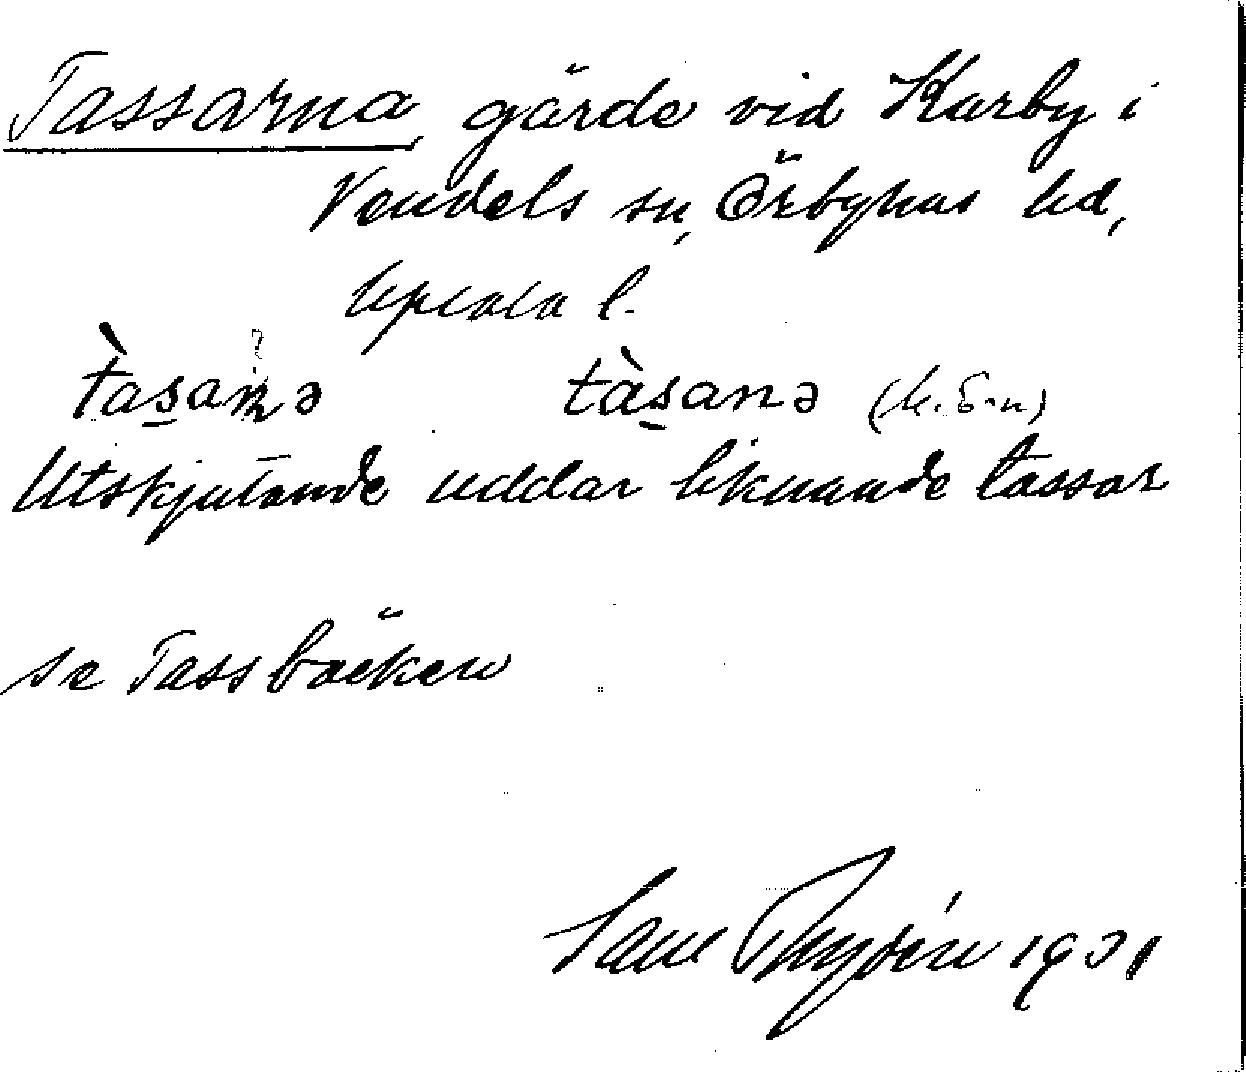 Tassarna, gärde vid Karby i
Vendels sn, Örbyhus hd,
Upsala l.
tàs̱anə tàs̱anə
Utskjutande uddar liknande tassar
se Tassbäcken
Sam 1931